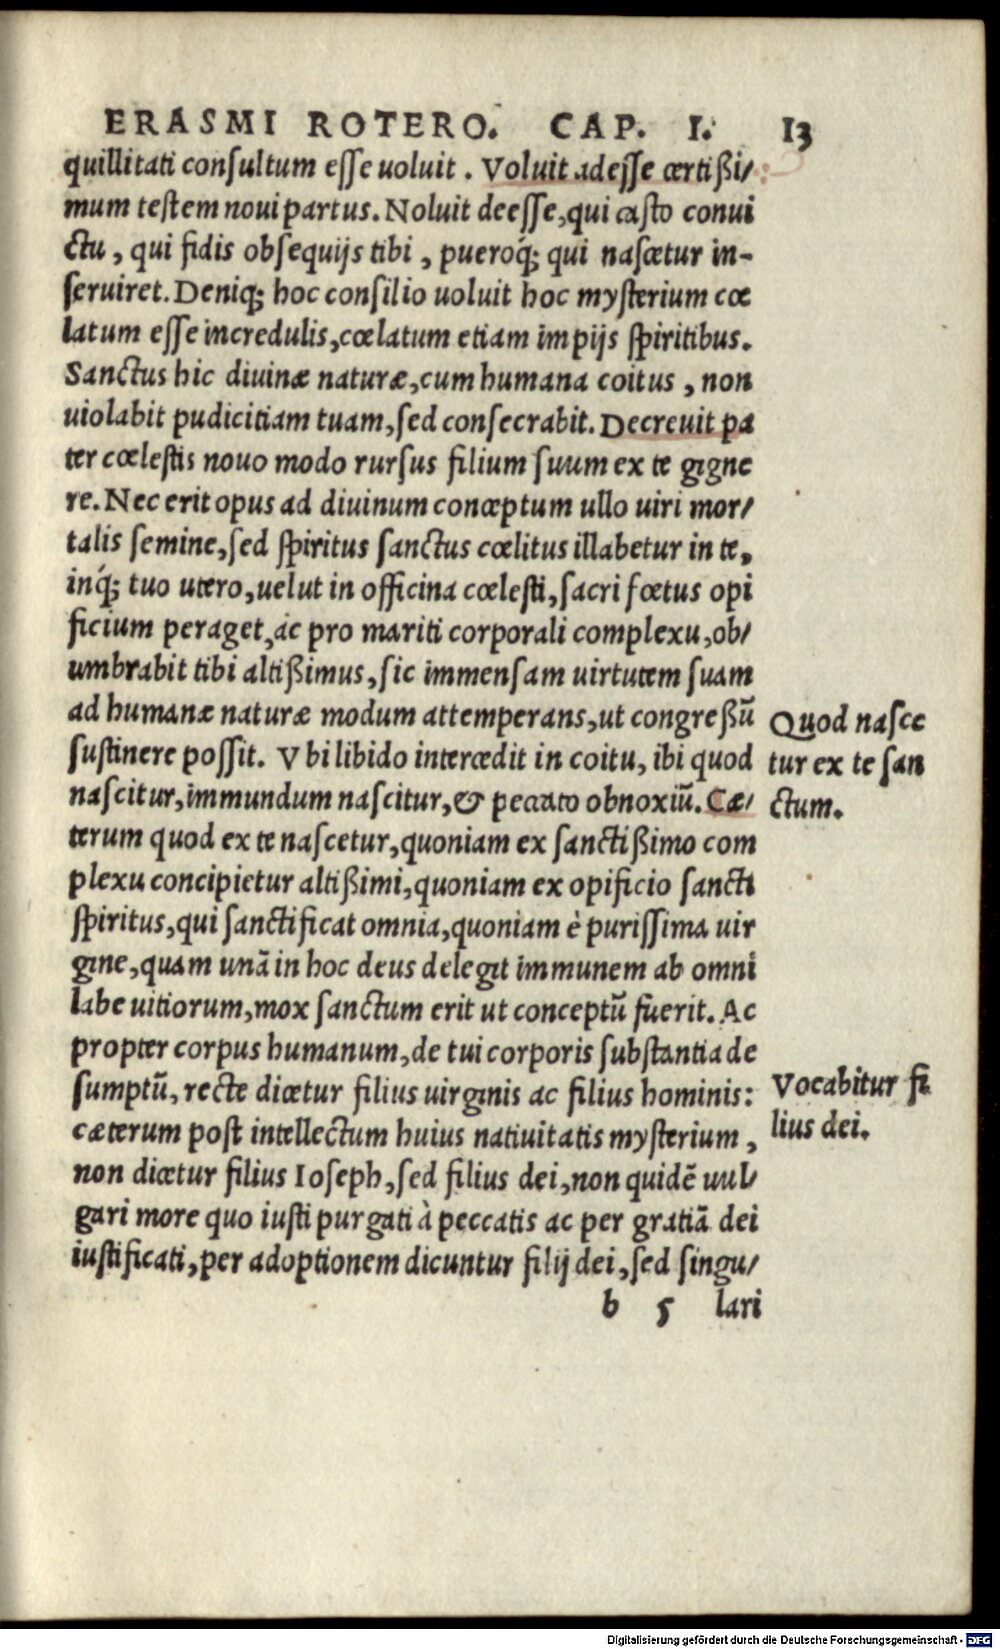 ERASMI ROTERO. CAP. I. 13
quillitati consultum esse uoluit. Voluit adesse certißi/
mum testem noui partus. Noluit deesse, qui casto conui
ctu, qui fidis obsequijs tibi, pueroq́; qui nascetur in-
seruiret. Deniq; hoc consilio uoluit hoc mysterium cœ
latum esse incredulis, cœlatum etiam impijs spiritibus.
Sanctus hic diuinæ naturæ, cum humana coitus, non
uiolabit pudicitiam tuam, sed consecrabit. Decreuit pa
ter cœlestis nouo modo rursus filium suum ex te gigne
re. Nec erit opus ad diuinum conceptum ullo uiri mor/
talis semine, sed spiritus sanctus cœlitus illabetur in te,
inq́; tuo utero, uelut in officina cœlesti, sacri fœtus opi
ficium peraget, ac pro mariti corporali complexu, ob/
umbrabit tibi altißimus, sic immensam uirtutem suam
ad humanæ naturæ modum attemperans, ut congreßū
sustinere possit. Vbi libido intercedit in coitu, ibi quod
nascitur, immundum nascitur, & peccato obnoxiū. Cæ/
terum quod ex te nascetur, quoniam ex sanctißimo com
plexu concipietur altißimi, quoniam ex opificio sancti
spiritus, qui sanctificat omnia, quoniam è purissima uir
gine, quam unā in hoc deus delegit immunem ab omni
labe uitiorum, mox sanctum erit ut conceptū fuerit. Ac
propter corpus humanum, de tui corporis substantia de
sumptū, recte dicetur filius uirginis ac filius hominis:
cæterum post intellectum huius natiuitatis mysterium,
non dicetur filius Ioseph, sed filius dei, non quidē uul/
gari more quo iusti purgati à peccatis ac per gratiā dei
iustificati, per adoptionem dicuntur filij dei, sed singu/
b 5 lari
Quod nasce
tur ex te san
ctum.
Vocabitur fi
lius dei.
Digitalisierung gefördert durch die Deutsche Forschungsgemeinschaft - DFG